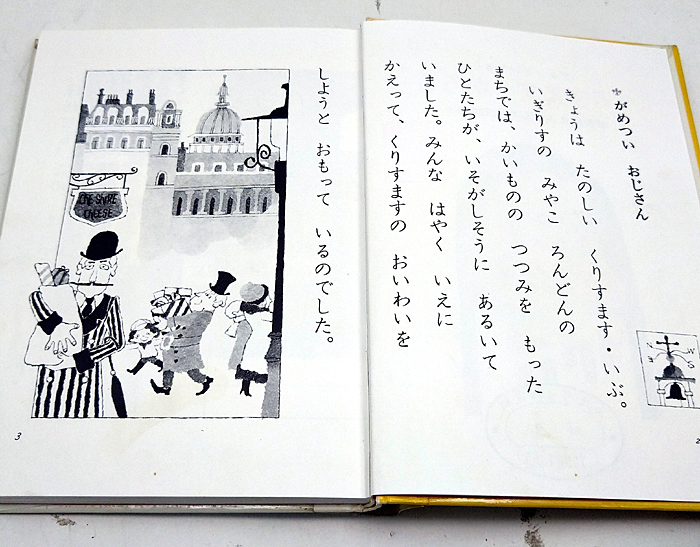 * がめつい おじさん
きょうは たのしい くりすます・いぶ。
いぎりすの みやこ ろんどんの
まちでは、かいものの つつみを もった
ひとたちが、いそがしそうに あるいて
いました。みんな はやく いえに
かえって、くりすますの おいわいを
2
しようと おもって いるのでした。
CHESHIRE
CHEESE
3